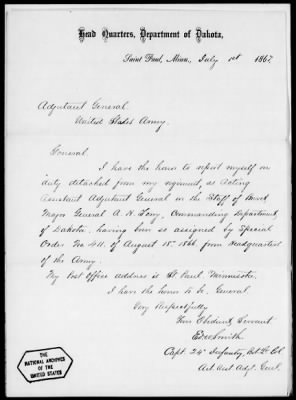 Head Quarters, Department of Dakota,
Saint Paul, Minn., July 1st 1867.
Adjutant General
United States Army.
General.
I have the honor to report myself on
duty detached from my regiment, as Acting
Assistant Adjutant General on the Staff of Brevet
Major General A. H. Terry, Commanding Department
of Dakota, having been so assigned by Special
Order No 411. of August 18th 1866 from Headquarters
of the Army.
My Post Office address is St Paul Minnesota.
I have the honor to be, General
Very Respectfully
Your Obedient Servant
Ed W Smith
Capt. 24th Infantry, Bvt Lt Col
Act. Asst Adjt. Genl.
THE
NATIONAL ARCHIVES
OF THE
UNITED STATES